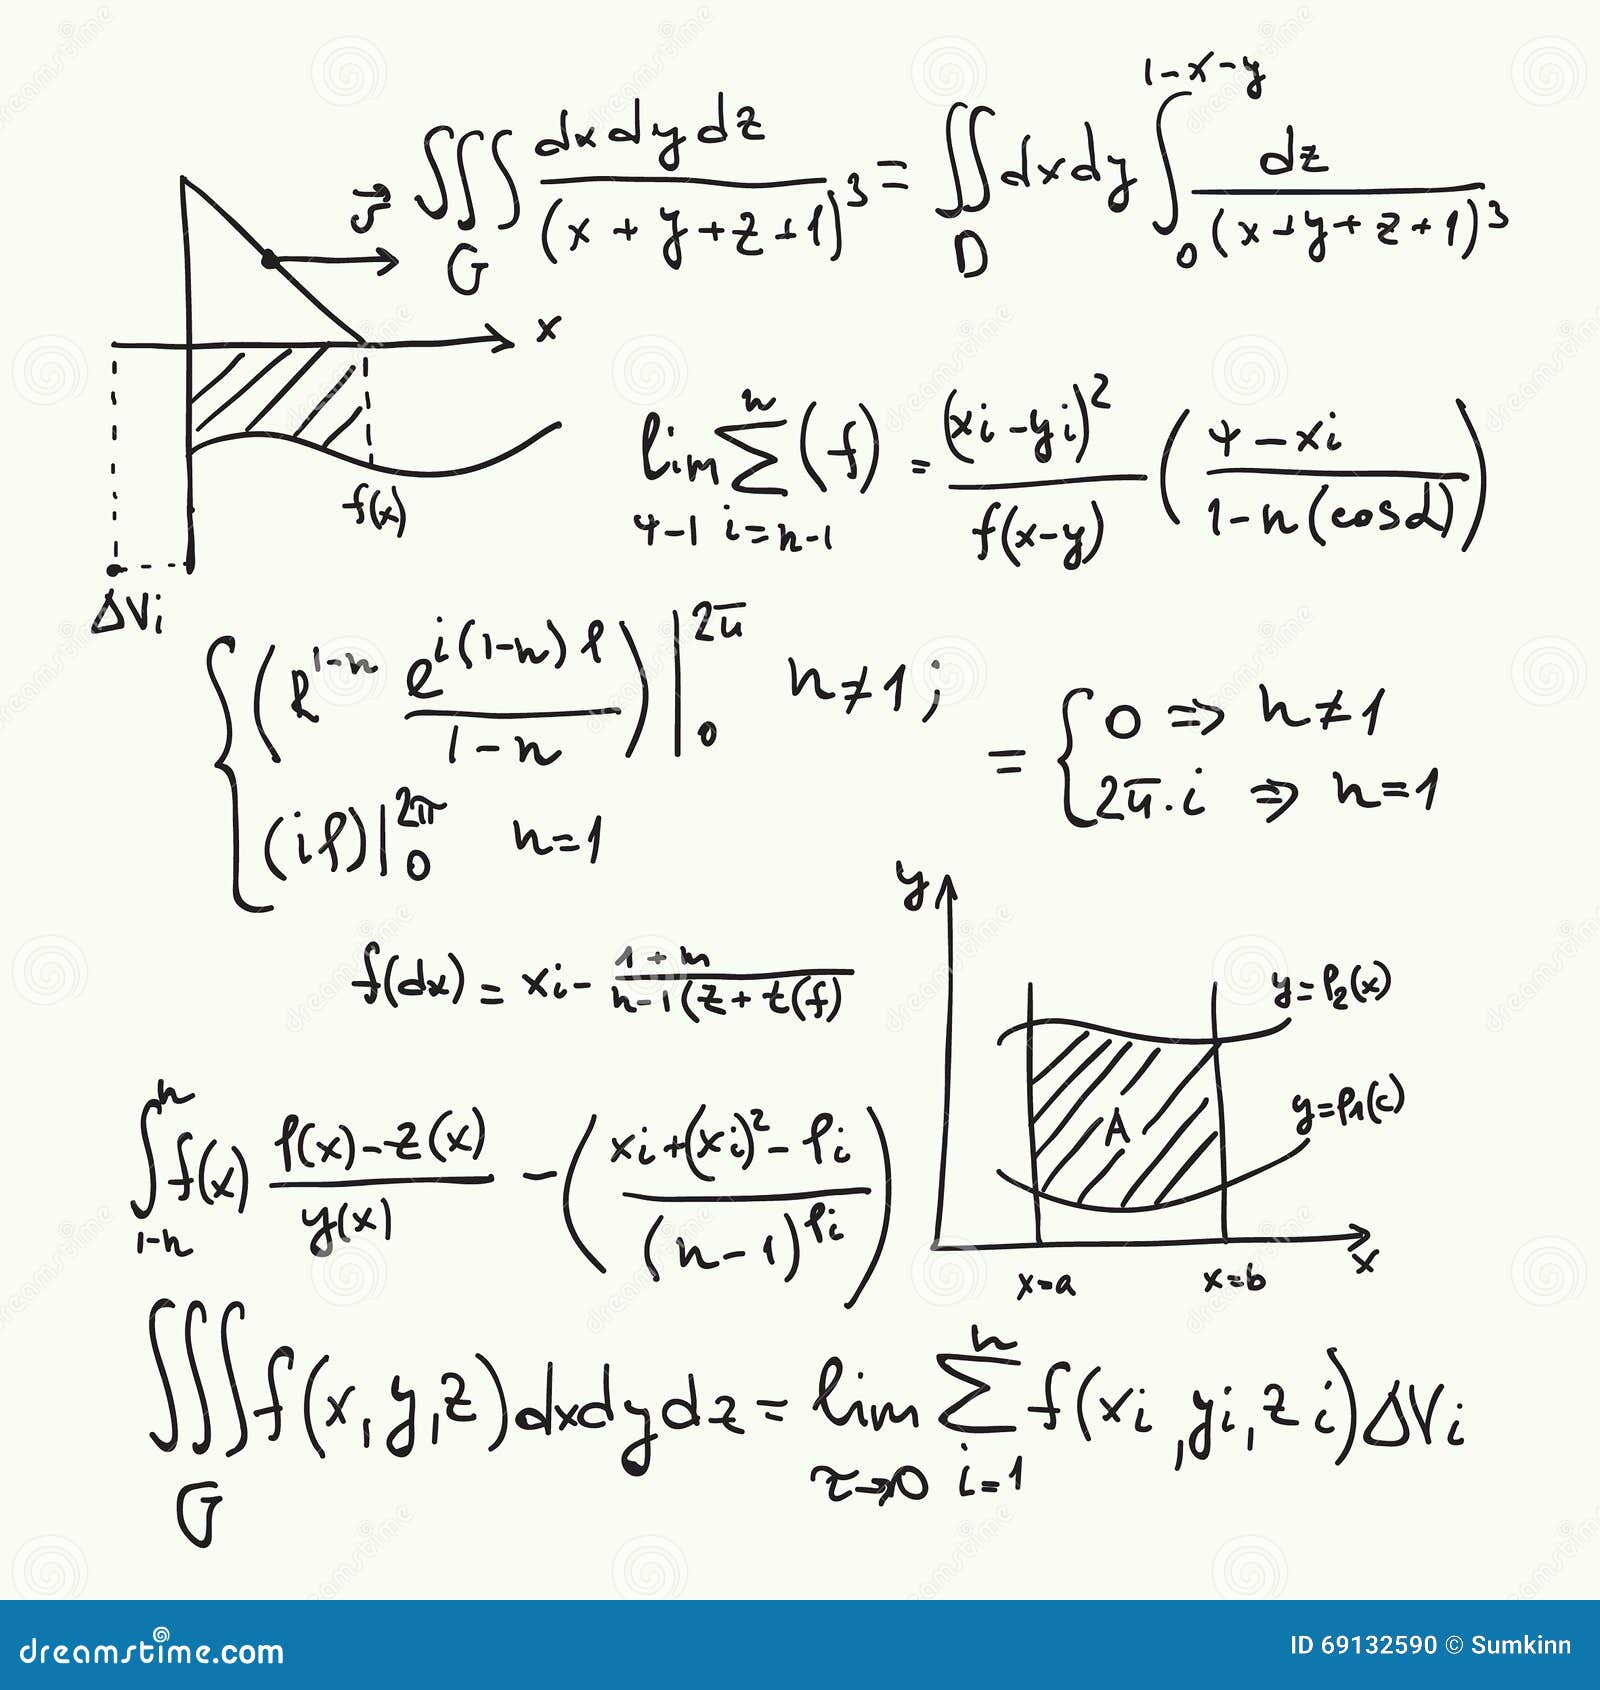 ∭_G dxdydz/(x+y+z+1)³ = ∬_D dxdy ∫_0^{1-x-y} dz/(x+y+z+1)³
x
f(x)
ΔVi
lim_{φ-1} ∑_{i=n-1}^{n} (f) = (xi-yi)²/f(x-y) (φ-xi/1-n(cosα))
{(R^{1-n} e^{i(1-n)φ}/1-n)|_0^{2π} n≠1;
(iφ)|_0^{2π} n=1
= {0 ⇒ n≠1
2π·i ⇒ n=1
f(dx) = xi - 1+m/n-1(z+t(f)
∫_{1-n}^{n} f(x) φ(x)-z(x)/y(x) - (xi+(xi)²-φi/(n-1)^{φi})
y
y=φ₂(x)
y=φ₁(c)
A
x
x=a
x=b
∭_G f(x,y,z)dxdydz = lim_{τ→0} ∑_{i=1}^{n} f(xi,yi,zi)ΔVi
dreamstime.com
ID 69132590 © Sumkinn